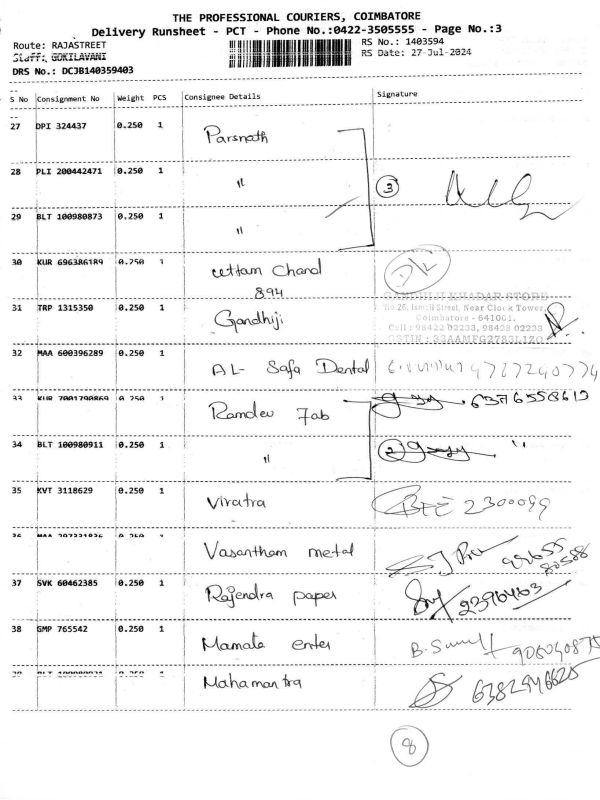 THE PROFESSIONAL COURIERS, COIMBATORE
Delivery Runsheet - PCT - Phone No.:0422-3505555 - Page No.:3
Route: RAJASTREET RS No.: 1403594
Staff: GOKILAVANI RS Date: 27-Jul-2024
DRS No.: DCJB140359403
S No Consignment No Weight PCS Consignee Details Signature
27 DPI 324437 0.250 1 Parsnath
28 PLI 200442471 0.250 1 " 3
29 BLT 100980873 0.250 1 "
30 KUR 696386189 0.250 1 uttam Chand
894
31 TRP 1315350 0.250 1 Gandhiji
GANDHIJI KHADAR STORE
No 26, Ismail Street, Near Clock Tower,
Coimbatore - 641001.
Cell : 98422 02233, 98428 02233
32 MAA 600396289 0.250 1 AL- Safa Dental
33 KUR 7001790869 0.250 1 Ramdev Fab
34 BLT 100980911 0.250 1 " 2 "
35 KVT 3118629 0.250 1 Viratra 2300099
36 0.250 1 Vasantham metal
37 SVK 60462385 0.250 1 Rajendra paper 2396463
38 GMP 765542 0.250 1 Mamata enter
39 0.250 1 Mahamantra
8